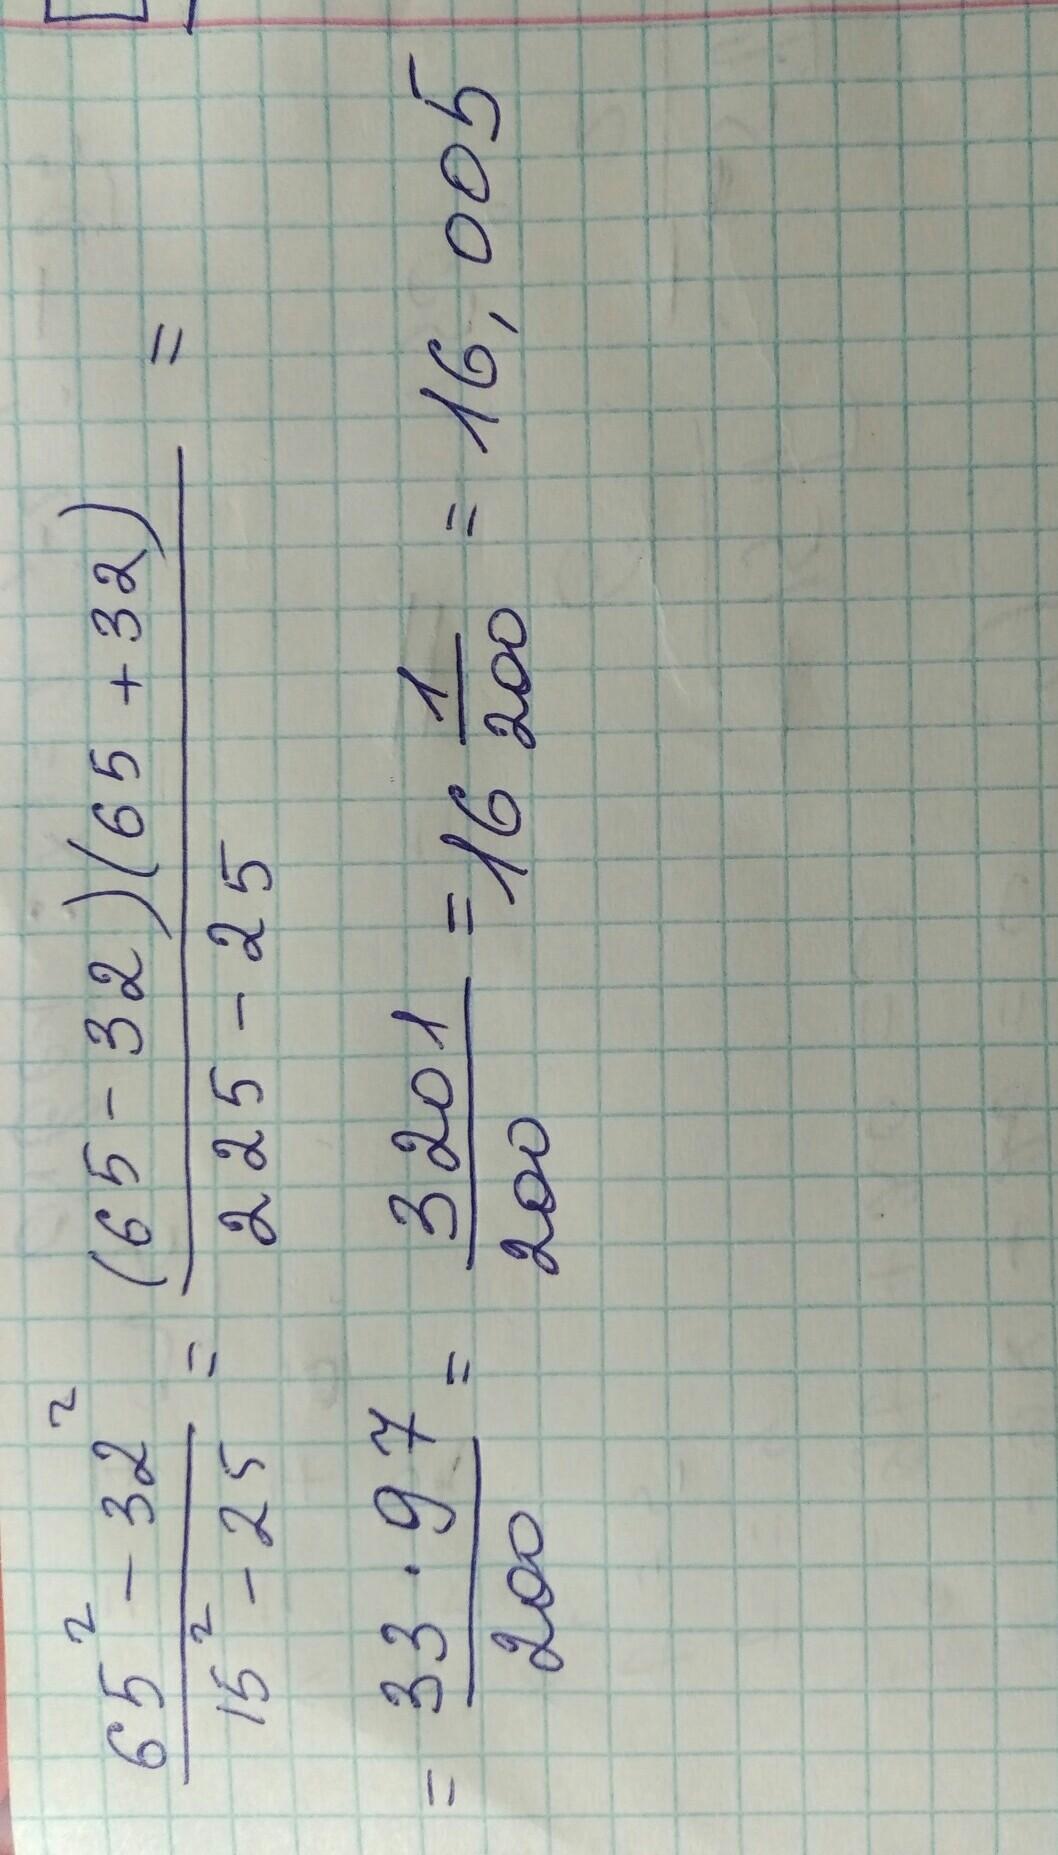 65² - 32² / 15² - 25 = (65 - 32)(65 + 32) / 225 - 25 =
= 33 · 97 / 200 = 3201 / 200 = 16 1/200 = 16,005